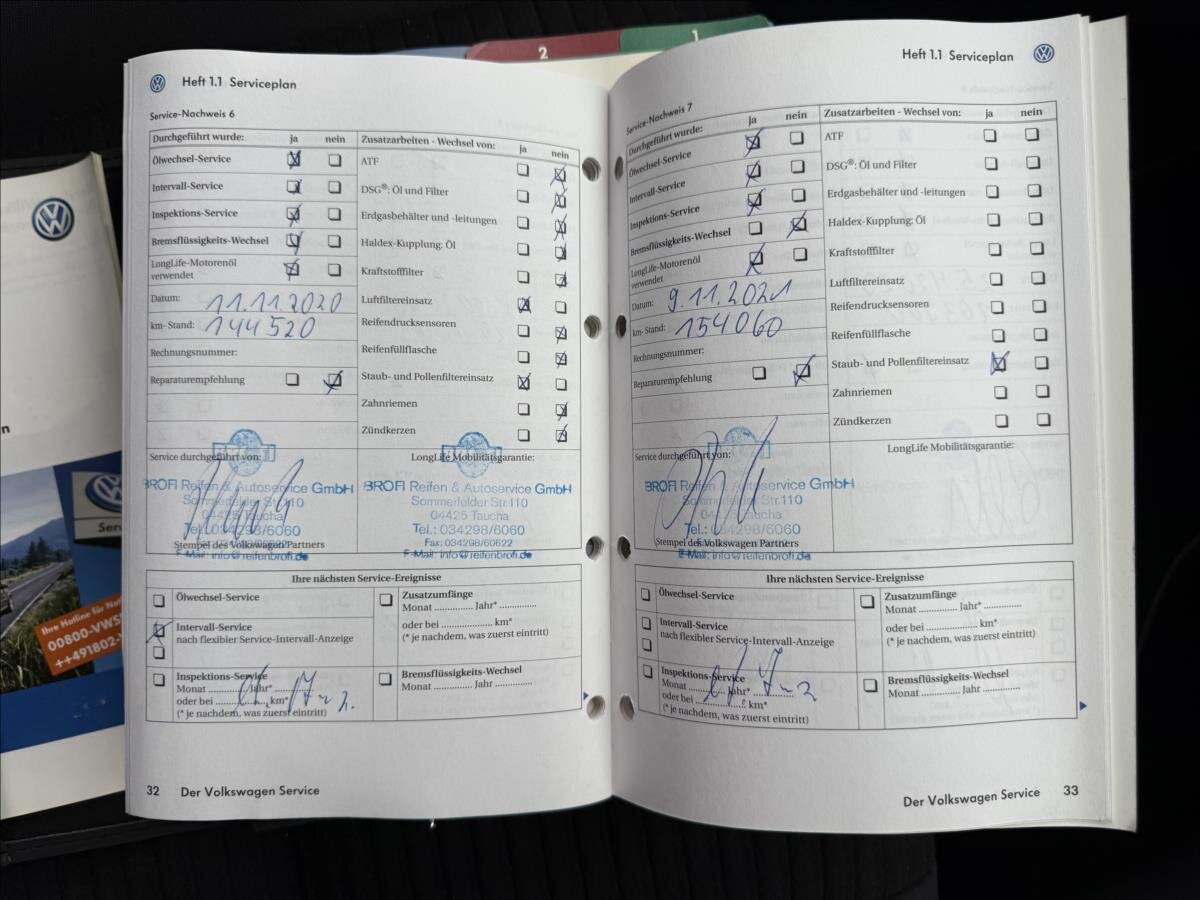 2
1
Heft 1.1 Serviceplan
Service-Nachweis 6
Durchgeführt wurde: ja nein
Ölwechsel-Service
Intervall-Service
Inspektions-Service
Bremsflüssigkeits-Wechsel
LongLife-Motorenöl
verwendet
Datum: 11.11.2020
km-Stand: 144520
Rechnungsnummer:
Reparaturempfehlung
Zusatzarbeiten - Wechsel von: ja nein
ATF
DSG®: Öl und Filter
Erdgasbehälter und -leitungen
Haldex-Kupplung: Öl
Kraftstofffilter
Luftfiltereinsatz
Reifendrucksensoren
Reifenfüllflasche
Staub- und Pollenfiltereinsatz
Zahnriemen
Zündkerzen
Service durchgeführt von:
BROFI Reifen & Autoservice GmbH
Sommerfelder Str.110
04425 Taucha
Tel.: 034298/6060
Stempel des Volkswagen Partners
E-Mail: info@reifenbrofi.de
LongLife Mobilitätsgarantie:
BROFI Reifen & Autoservice GmbH
Sommerfelder Str.110
04425 Taucha
Tel.: 034298/6060
Fax: 034298/60622
E-Mail: info@reifenbrofi.de
Ihre nächsten Service-Ereignisse
Ölwechsel-Service
Intervall-Service
nach flexibler Service-Intervall-Anzeige
Inspektions-Service
Monat .............. Jahr*
oder bei .............. km*
(* je nachdem, was zuerst eintritt)
Zusatzumfänge
Monat .............. Jahr* ..............
oder bei .................... km*
(* je nachdem, was zuerst eintritt)
Bremsflüssigkeits-Wechsel
Monat .............. Jahr ..............
32 Der Volkswagen Service
Heft 1.1 Serviceplan
Service-Nachweis 7
Durchgeführt wurde: ja nein
Ölwechsel-Service
Intervall-Service
Inspektions-Service
Bremsflüssigkeits-Wechsel
LongLife-Motorenöl
verwendet
Datum: 9.11.2021
km-Stand: 154060
Rechnungsnummer:
Reparaturempfehlung
Zusatzarbeiten - Wechsel von: ja nein
ATF
DSG®: Öl und Filter
Erdgasbehälter und -leitungen
Haldex-Kupplung: Öl
Kraftstofffilter
Luftfiltereinsatz
Reifendrucksensoren
Reifenfüllflasche
Staub- und Pollenfiltereinsatz
Zahnriemen
Zündkerzen
Service durchgeführt von:
BROFI Reifen & Autoservice GmbH
Sommerfelder Str.110
04425 Taucha
Tel.: 034298/6060
Stempel des Volkswagen Partners
E-Mail: info@reifenbrofi.de
LongLife Mobilitätsgarantie:
Ihre nächsten Service-Ereignisse
Ölwechsel-Service
Intervall-Service
nach flexibler Service-Intervall-Anzeige
Inspektions-Service
Monat .............. Jahr*
oder bei .............. km*
(* je nachdem, was zuerst eintritt)
Zusatzumfänge
Monat .............. Jahr* ..............
oder bei .................... km*
(* je nachdem, was zuerst eintritt)
Bremsflüssigkeits-Wechsel
Monat .............. Jahr ..............
Der Volkswagen Service 33